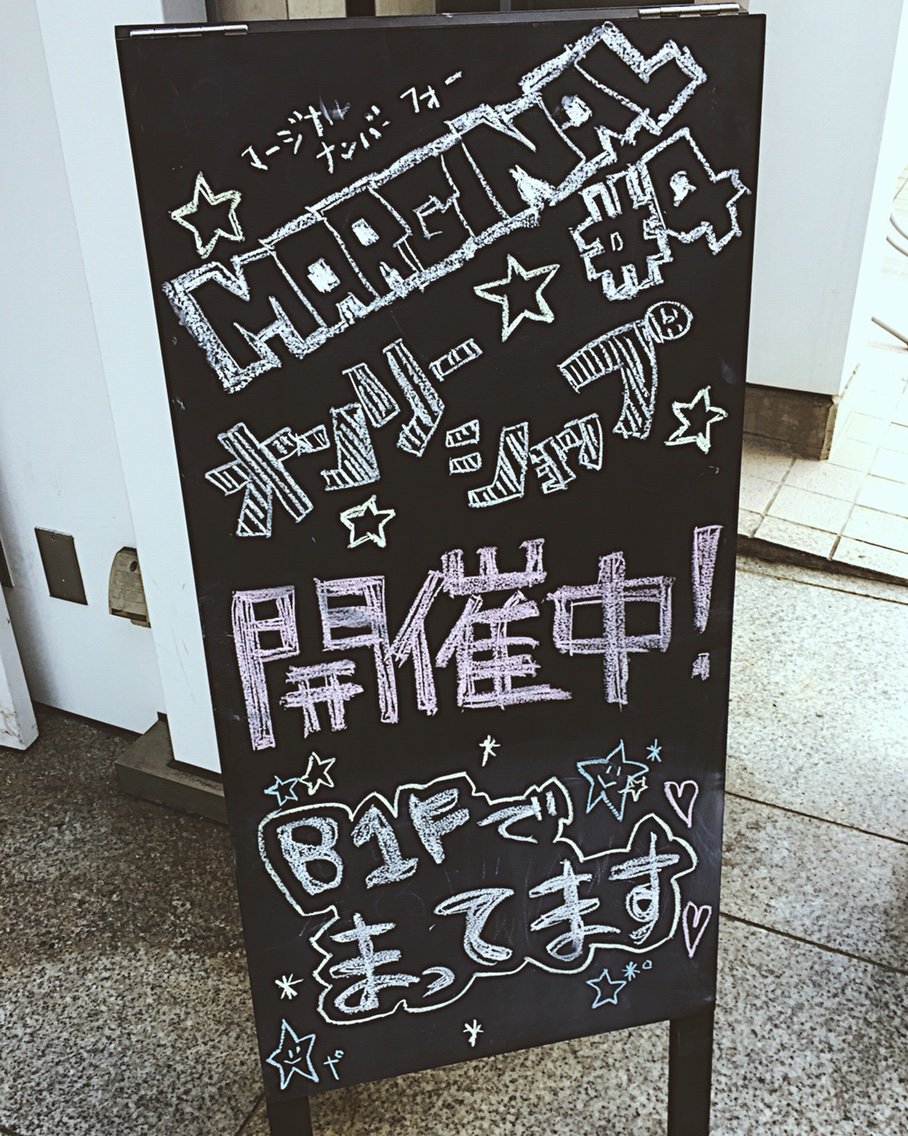 マージナル
ナンバー フォー
MARGINAL
#4
オンリー
ショップ
開催中!
B1Fで
まってます